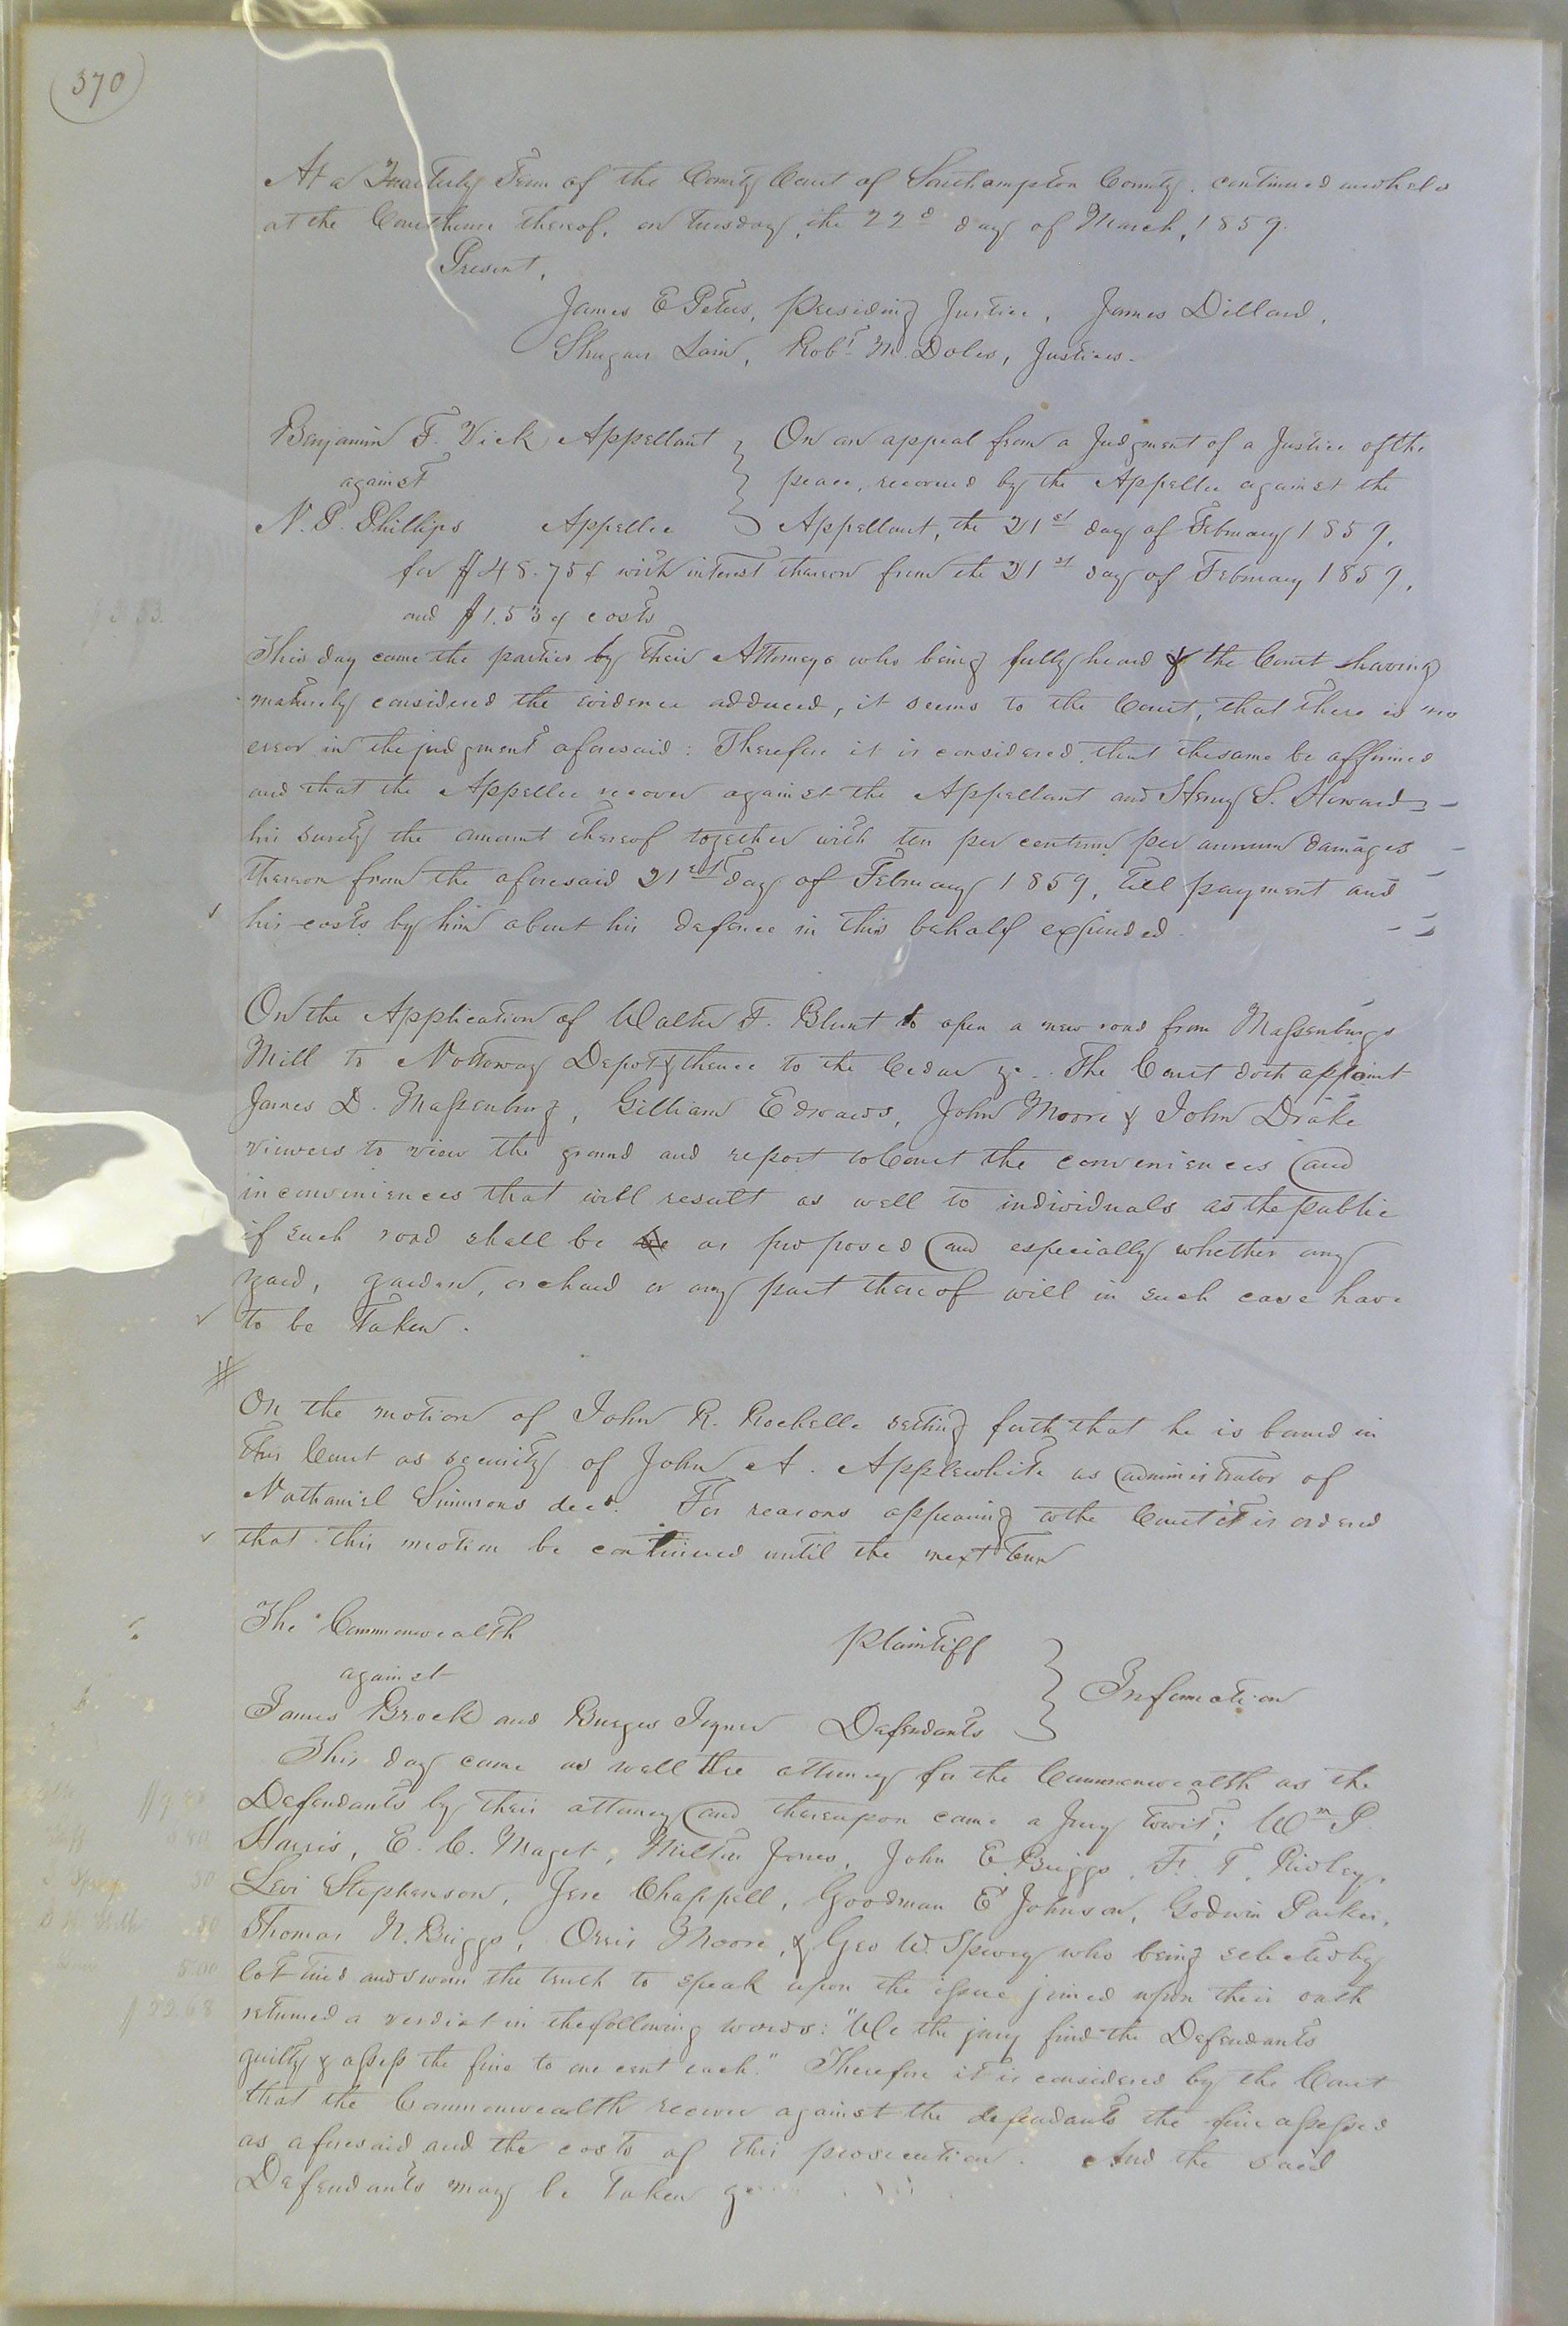 370
At a Quarterly Term of the County Court of Southampton County, continued and held
at the Courthouse thereof, on Tuesday, the 22d day of March, 1859.
Present,
James E Peters, presiding Justice, James Dillard,
Shugar Lain, Robt M. Doles, Justices.
Benjamin F. Vick Appellant } On an appeal from a Judgment of a Justice of the
against } peace, recovered by the Appellee against the
N. P. Phillips Appellee } Appellant, the 21st day of February 1859,
for $48.75¢ with interest thereon from the 21st day of February 1859,
and $1.53¢ costs
This day came the parties by their Attorneys who being fully heard & the Court having
maturely considered the evidence adduced, it seems to the Court, that there is no
error in the judgment aforesaid: Therefore it is considered that the same be affirmed
and that the Appellee recover against the Appellant and Henry S. Howard
his surety the amount thereof together with ten per centum per annum damages
thereon from the aforesaid 21st day of February 1859, till payment and
his costs by him about his defence in this behalf expended.
On the Application of Walter F. Blunt to open a new road from Massenburgs
Mill to Nottoway Depot & thence to the Cedar &c. The Court doth appoint
James D. Massenburg, Gilliam Edwards, John Moore & John Drake
viewers to view the ground and report to Court the conveniences and
inconveniences that will result as well to individuals as the public
if such road shall be as proposed and especially whether any
yard, garden, orchard or any part thereof will in such case have
to be taken.
On the motion of John R. Rochelle setting forth that he is bound in
this Court as security of John A. Applewhite as administrator of
Nathaniel Simmons decd. For reasons appearing to the Court it is ordered
that this motion be continued until the next term
The Commonwealth plaintiff }
against } Information
James Brock and Burges Joyner Defendants }
This day came as well the attorney for the Commonwealth as the
Defendants by their attorney and thereupon came a Jury towit; Wm P.
Harris, E. C. Maget, Milton Jones, John E. Briggs, F. T. Ridley,
Levi Stephenson, Jere Chappell, Goodman E Johnson, Godwin Parker,
Thomas N. Briggs, Orris Moore, & Geo W. Spivey who being selected by
lot tried and sworn the truth to speak upon the issue joined upon their oath
returned a verdict in the following words: "We the jury find the Defendants
guilty & assess the fine to one cent each." Therefore it is considered by the Court
that the Commonwealth recover against the defendants the fine assessed
as aforesaid and the costs of this prosecution. And the said
Defendants may be taken